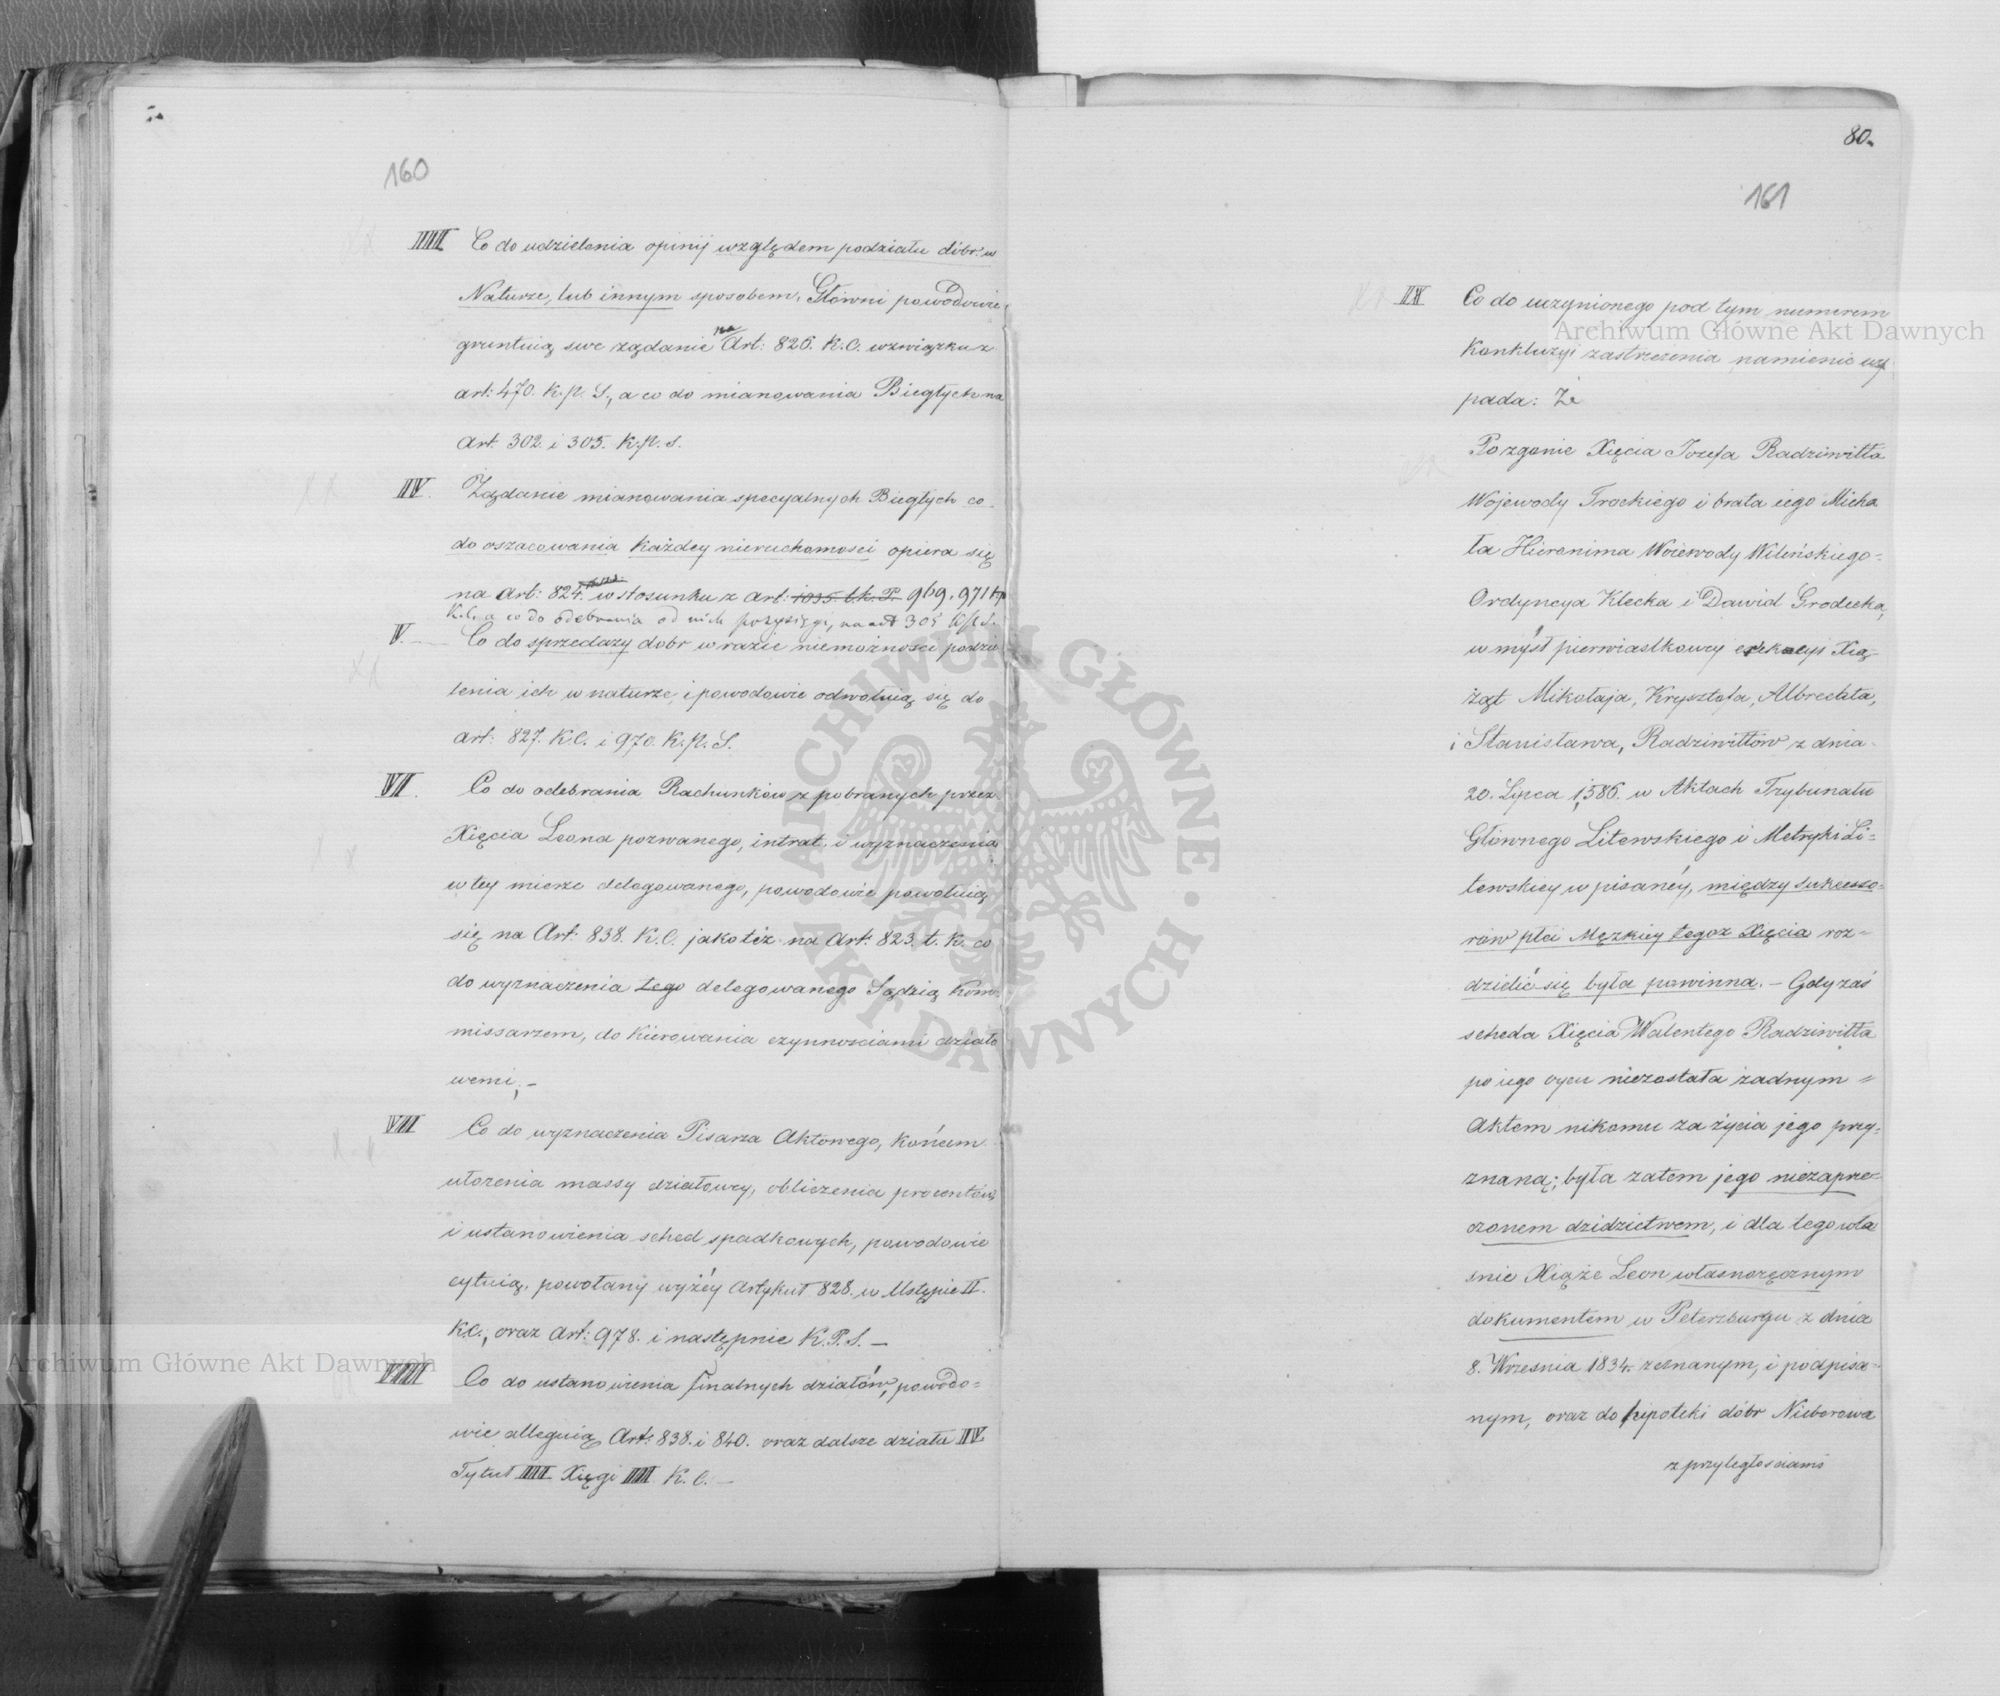 160
IIII Co do udzielenia opinij względem podziału dóbr w
Naturze, lub innym sposobem, Główni powodowie
gruntuią swe żądanie na Art: 826. K.C. w związku z
art: 470. K.p. S., a co do mianowania Biegłych na
Art: 302. i 305. K.p. S.
IV. Żądanie mianowania specyalnych Biegłych co
do oszacowania każdey nieruchomości opiera się
na Art: 824. w stosunku z art: 1035. t.k. P. 969. 971 kp
K.C. a co do odebrania od nich przysięgi, na art 305 K.p.S.
V. Co do sprzedaży dobr w razie niemożności podzie
lenia ich w naturze, powodowie odwołuią się do
art: 827. K.C. i 970. K.p. S.
VI. Co do odebrania Rachunków z pobranych przez
Xięcia Leona pozwanego, intrat, i wyznaczenia
w tey mierze delegowanego, powodowie powołuią
się na Art: 838. K.C. jakoteż na Art: 823. t. k. co
do wyznaczenia tego delegowanego Sędzią Kom-
missarzem, do kierowania czynnościami działo
wemi, –
VII Co do wyznaczenia Pisarza Aktowego, końcem
ułożenia massy działowey, obliczenia procentów,
i ustanowienia sched spadkowych, powodowie
cytuią, powołany wyżéy Artykuł 828. w Ustępie II.
K.C., oraz Art: 978. i następnie K.P.S. —
VIII Co do ustanowienia finalnych działów, powodo=
wie alleguią Art: 838. i 840. oraz dalsze działu IV.
Tytuł IIII Xięgi IIII. K. C. —
80.
161
IX Co do uczynionego pod tym numerem
Konkluzyi zastrzeżenia namienić wy
pada: Że
Po zgonie Xięcia Jozefa Radziwiłła
Wojewody Trockiego i brata iego Micha
ła Hieronima Woiewody Wileńskiego=
Ordyncya Klecka i Dawid Grodecka,
w myśl pierwiastkowey erekcyi Xią-
żąt Mikołaja, Krysztofa, Albrechta,
i Stanisława, Radziwiłłów z dnia
20. Lipca 1,586. w Aktach Trybunału
Głównego Litewskiego i Metryki Li=
tewskiey w pisanéy, między sukcesso=
rów płci Męzkiey tegoż Xięcia roz=
dzielić się była powinna. — Gdy zaś
scheda Xięcia Walentego Radziwiłła
po iego oycu niezostała żadnym =
Aktem nikomu za życia jego przy=
znaną; była zatem jego niezaprze=
czonem dzidzictwem, i dla tego wła
śnie Xiąże Leon własnoręcznym
dokumentem w Peterzburgu z dnia
8. Września 1834. zeznanym, i podpisa=
nym, oraz do hipoteki dóbr Nieborowa
z przyległosciami
Archiwum Główne Akt Dawnych
Archiwum Główne Akt Dawnych
ARCHIWUM GŁÓWNE · AKT DAWNYCH ·